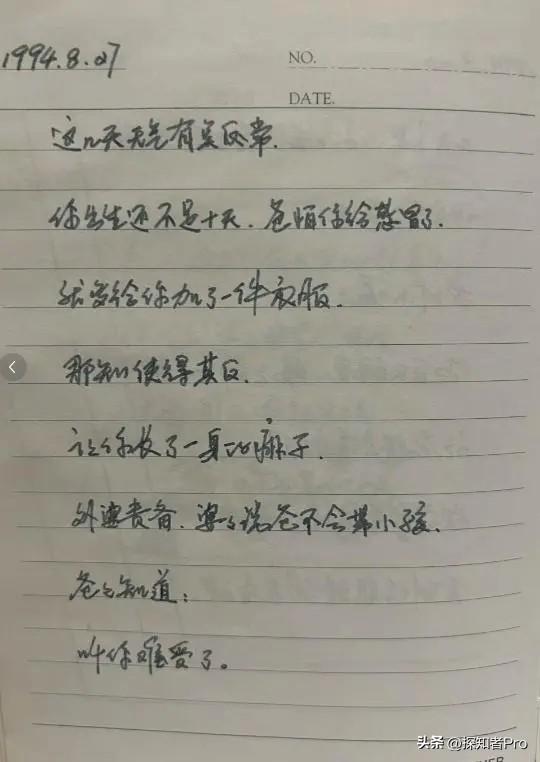 1994.8.27
NO.
DATE.
这几天天气有点反常.
你出生还不足十天.爸怕你给感冒了.
就多给你加了一件衣服.
那知使得其反.
让你长了一身的痱子.
外婆责备.婆々说爸不会带小孩.
爸々知道:
叫你难受了。
头条 @探知者Pro